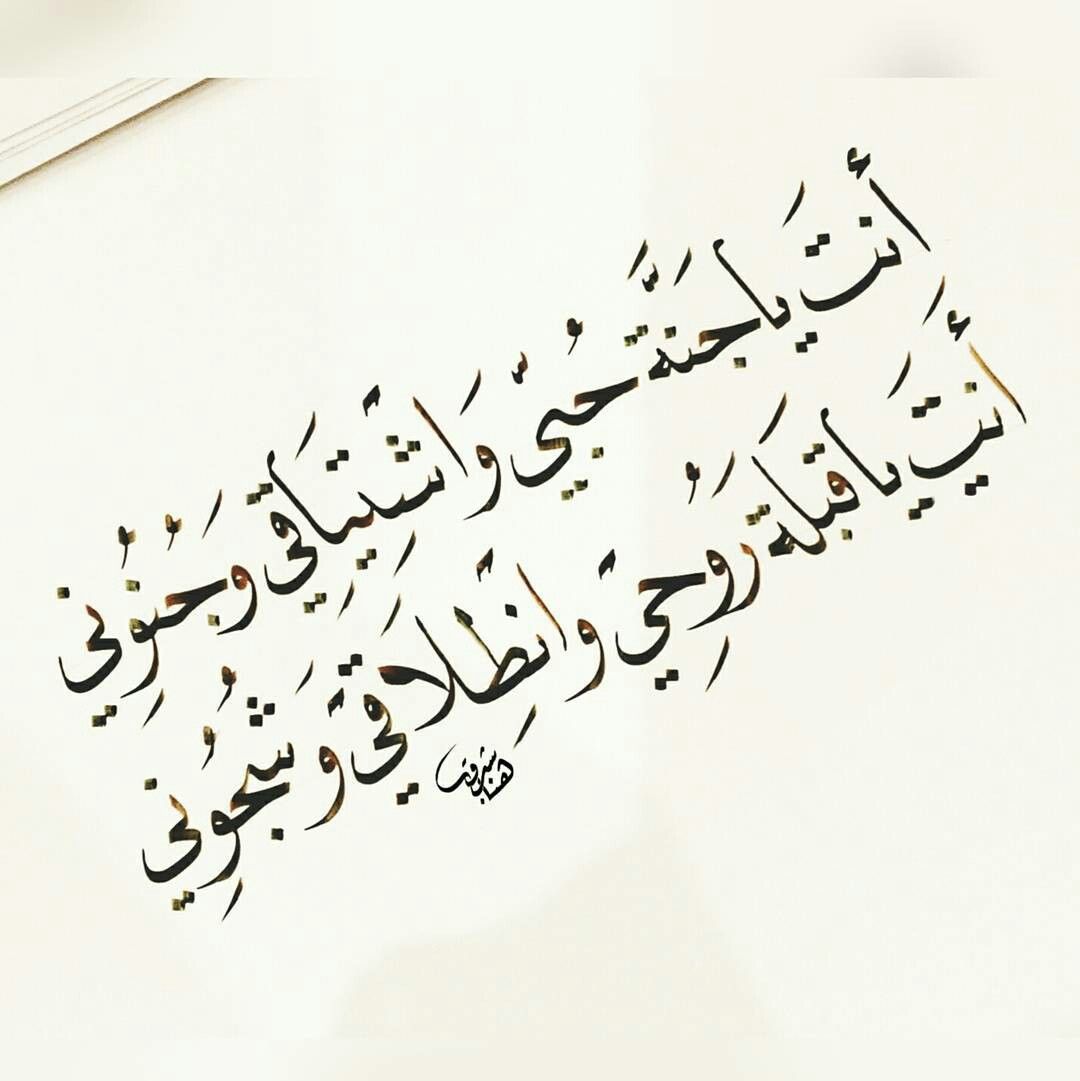 أنتَ يا جنَّةَ حُبّي وَاشْتِيَاقي وَجُنُوني
أنتَ يا قبلَة رُوحي وانطِلاقي وَشُجُوني